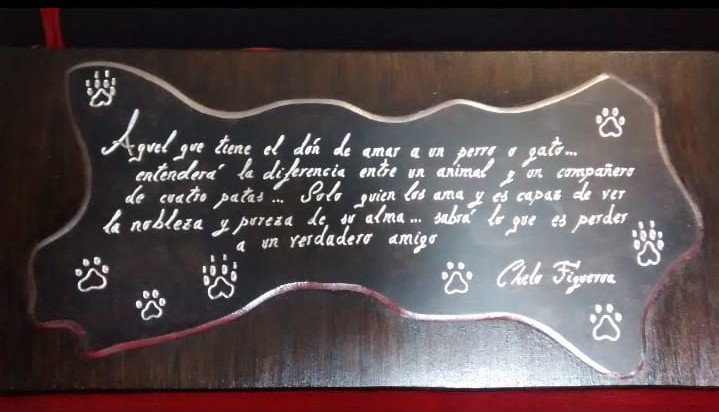 Aquel que tiene el dón de amar a un perro o gato...
entenderá la diferencia entre un animal y un compañero
de cuatro patas... Solo quien los ama y es capaz de ver
la nobleza y pureza de su alma... sabrá lo que es perder
a un verdadero amigo
Chelo Figueroa